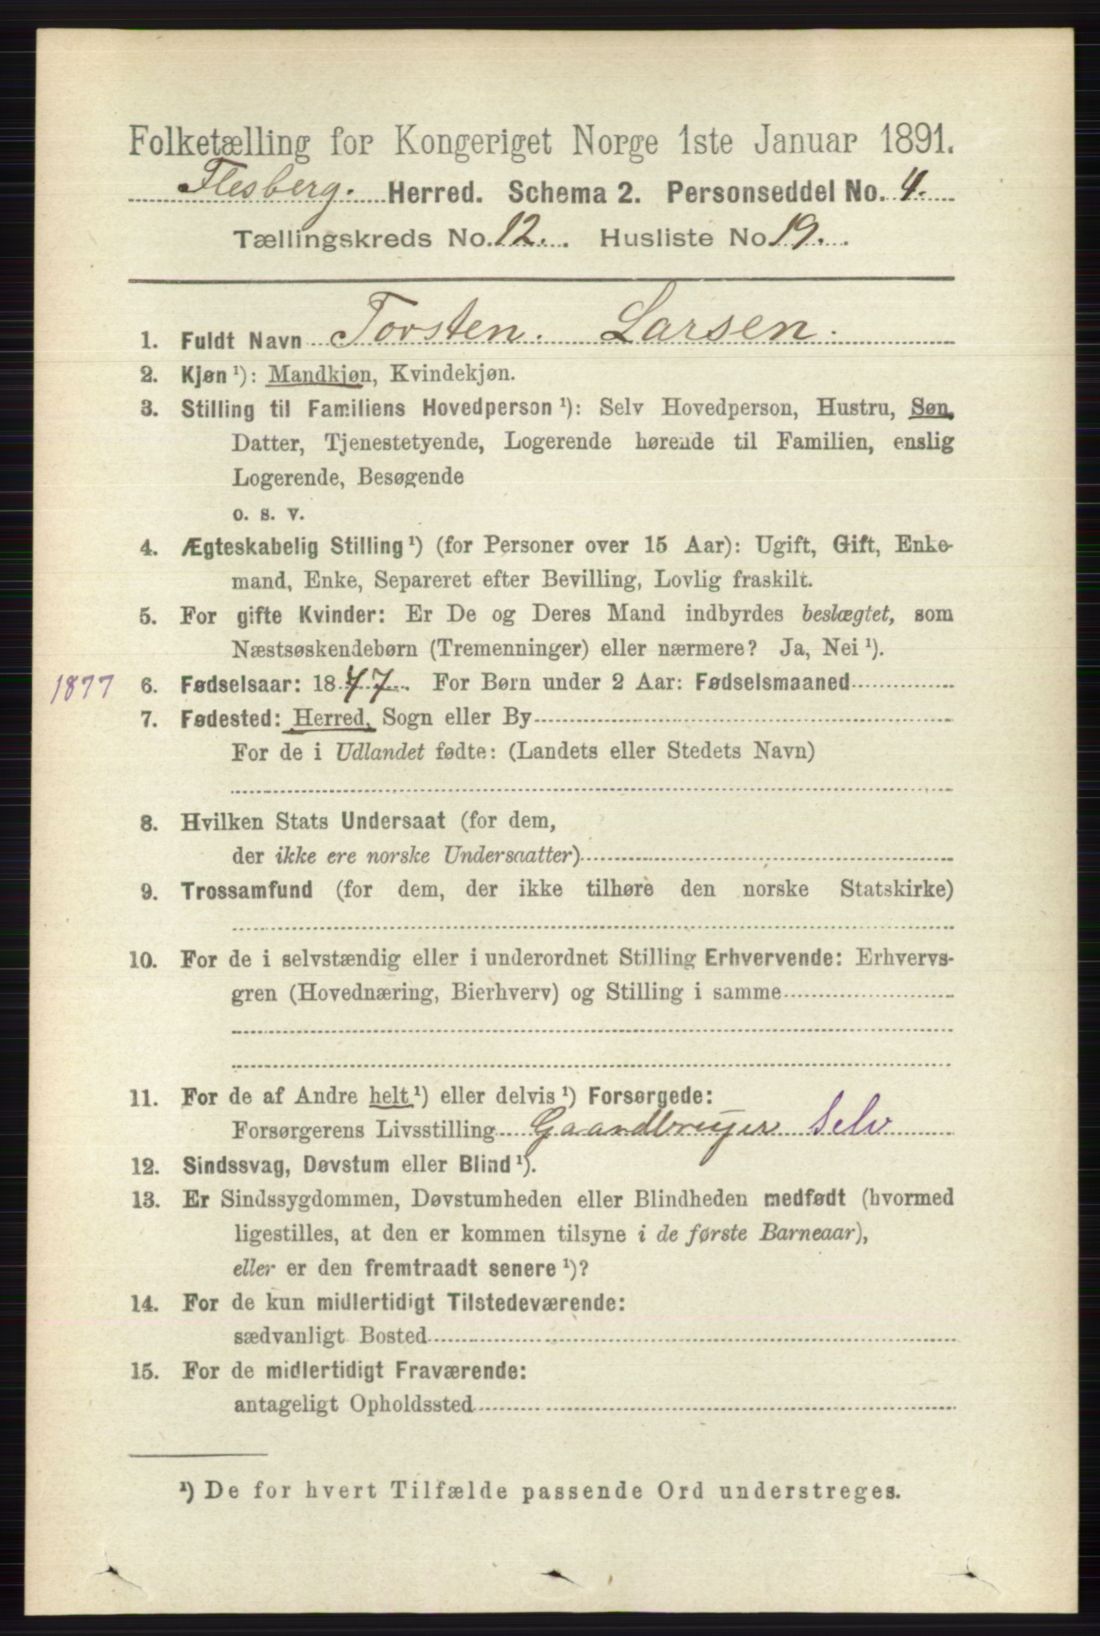 Folketælling for Kongeriget Norge 1ste Januar 1891.
Flesberg. Herred. Schema 2. Personseddel No. 4.
Tællingskreds No. 12. Husliste No 19.
1. Fuldt Navn Torsten. Larsen.
2. Kjøn ¹): Mandkjøn, Kvindekjøn.
3. Stilling til Familiens Hovedperson ¹): Selv Hovedperson, Hustru, Søn,
Datter, Tjenestetyende, Logerende hørende til Familien, enslig
Logerende, Besøgende
o. s. v.
4. Ægteskabelig Stilling ¹) (for Personer over 15 Aar): Ugift, Gift, Enke-
mand, Enke, Separeret efter Bevilling, Lovlig fraskilt.
5. For gifte Kvinder: Er De og Deres Mand indbyrdes beslægtet, som
Næstsøskendebørn (Tremenninger) eller nærmere? Ja, Nei ¹).
1877 6. Fødselsaar: 1877. For Børn under 2 Aar: Fødselsmaaned
7. Fødested: Herred, Sogn eller By
For de i Udlandet fødte: (Landets eller Stedets Navn)
8. Hvilken Stats Undersaat (for dem,
der ikke ere norske Undersaatter)
9. Trossamfund (for dem, der ikke tilhøre den norske Statskirke)
10. For de i selvstændig eller i underordnet Stilling Erhvervende: Erhvervs-
gren (Hovednæring, Bierhverv) og Stilling i samme
11. For de af Andre helt ¹) eller delvis ¹) Forsørgede:
Forsørgerens Livsstilling Gaardbruger Selv
12. Sindssvag, Døvstum eller Blind ¹).
13. Er Sindssygdommen, Døvstumheden eller Blindheden medfødt (hvormed
ligestilles, at den er kommen tilsyne i de første Barneaar),
eller er den fremtraadt senere ¹)?
14. For de kun midlertidigt Tilstedeværende:
sædvanligt Bosted
15. For de midlertidigt Fraværende:
antageligt Opholdssted
¹) De for hvert Tilfælde passende Ord understreges.